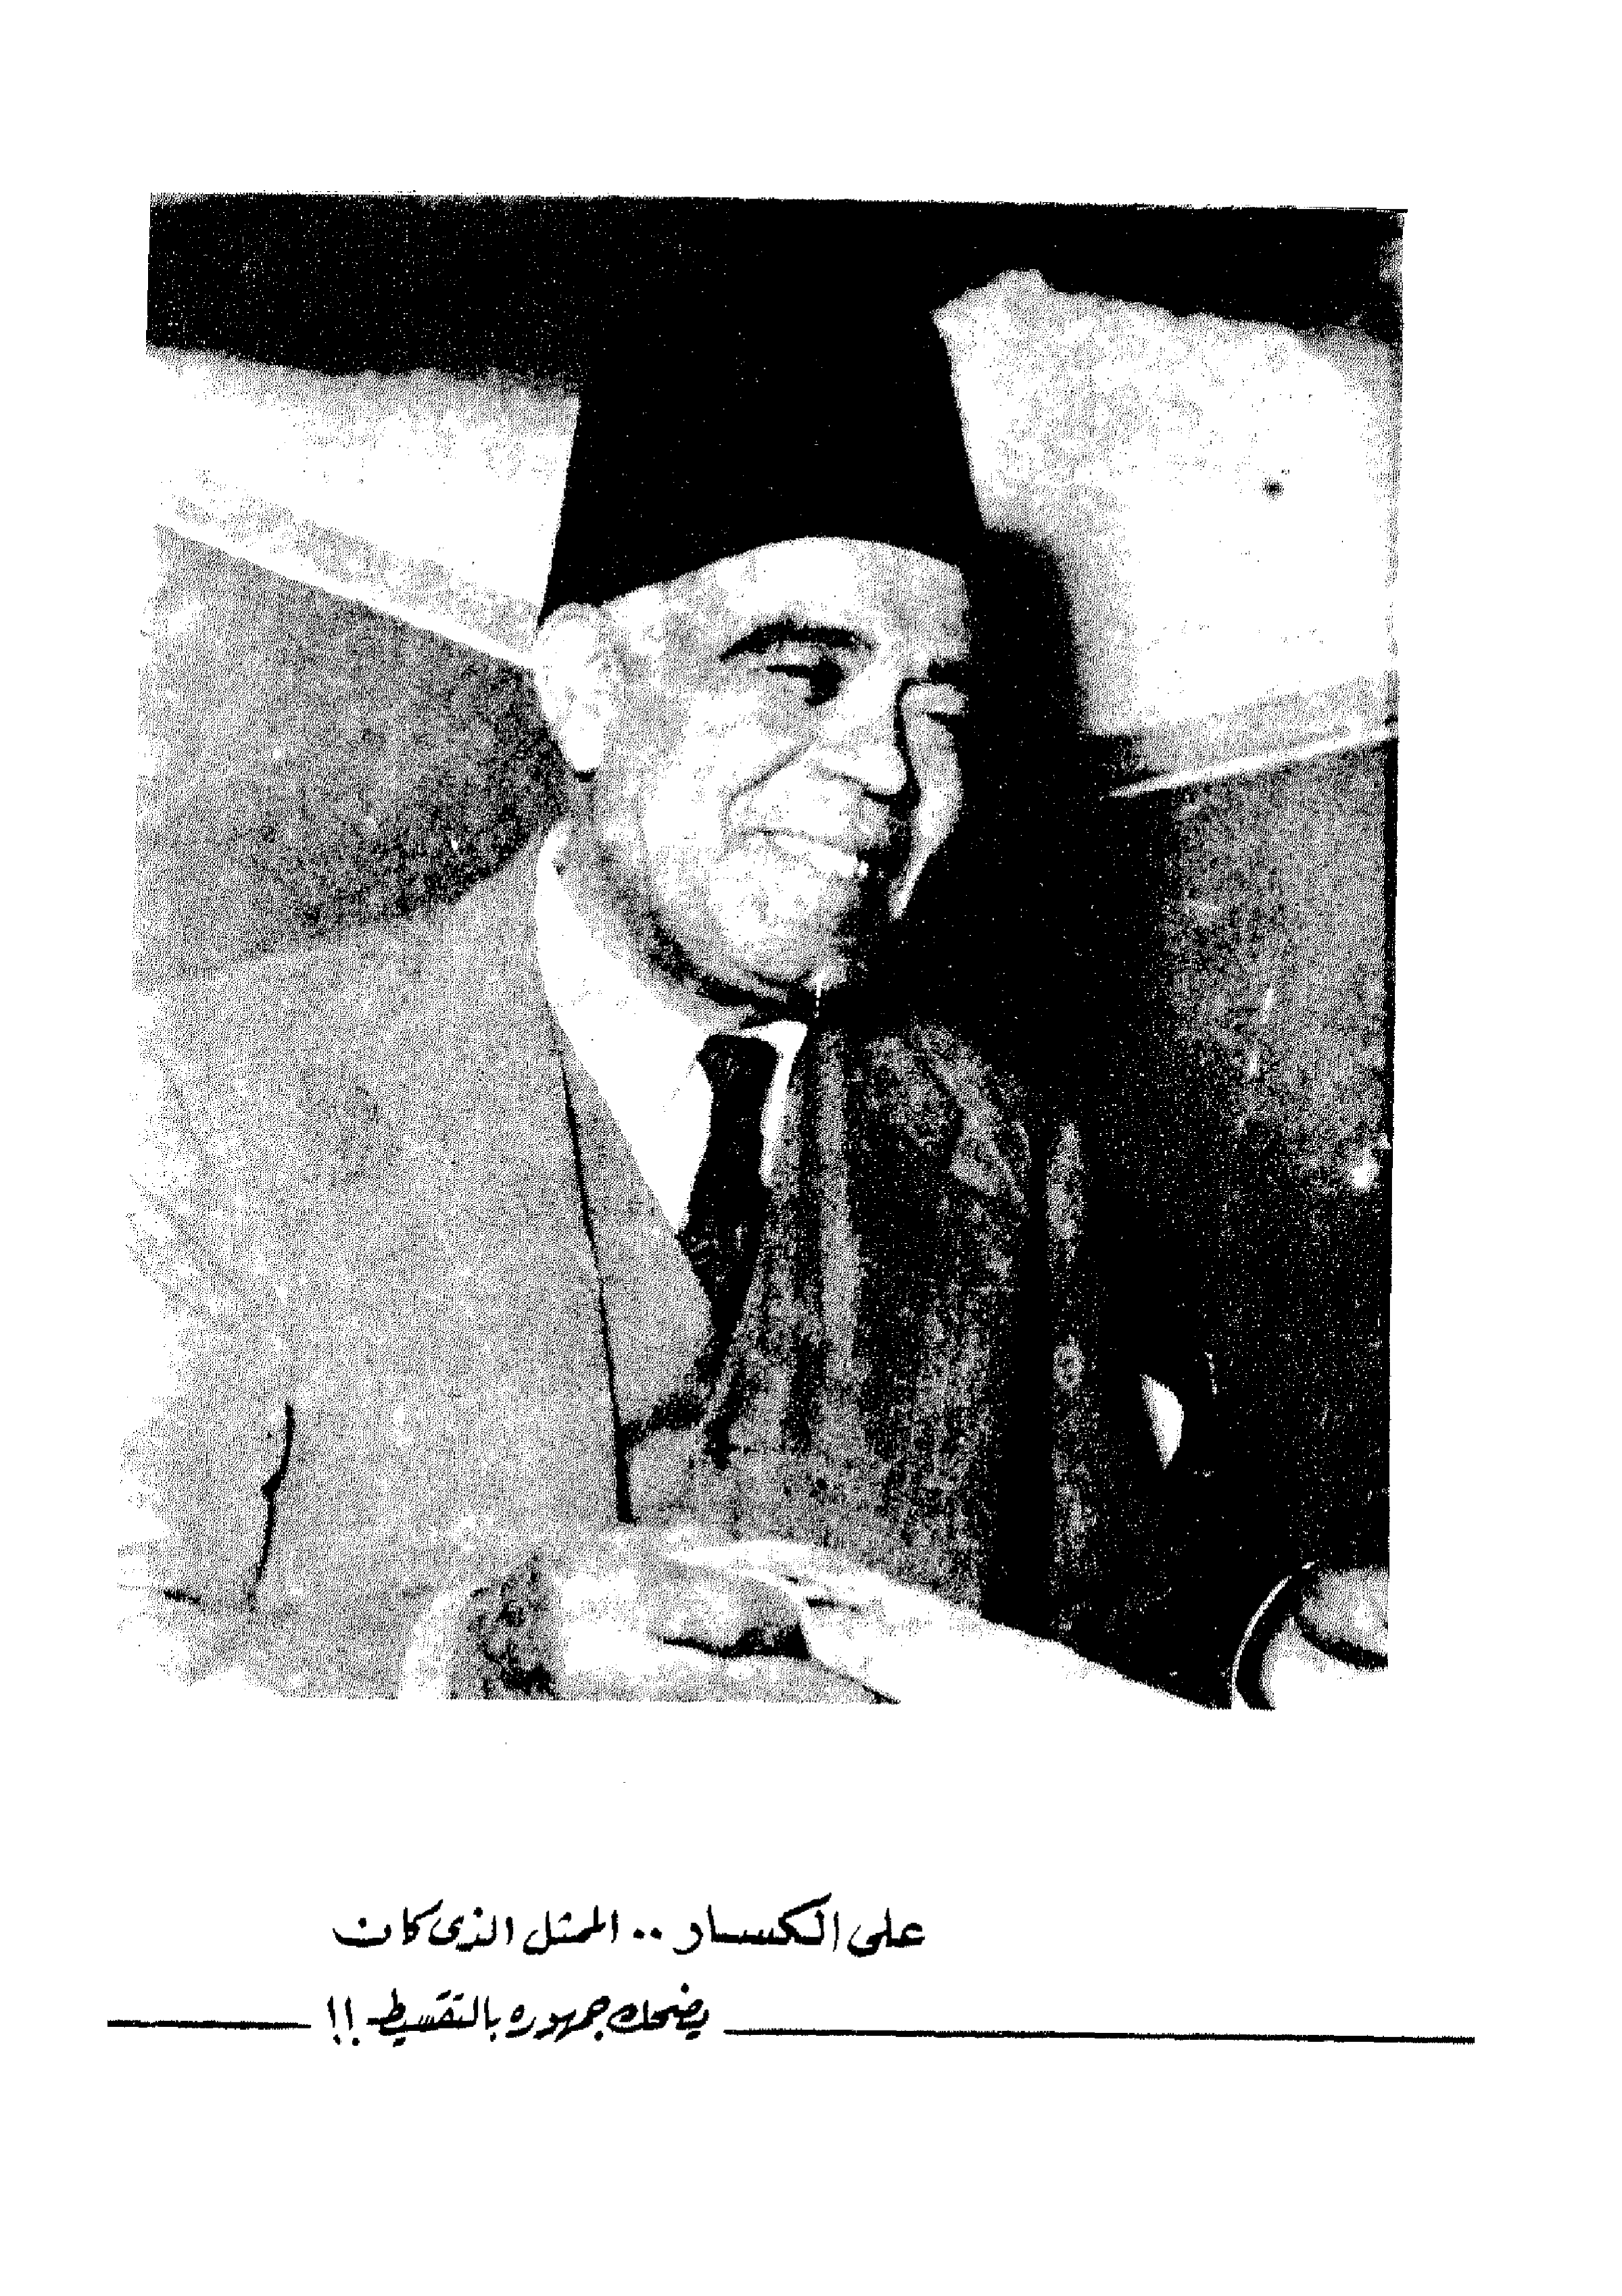 على الكسار .. الممثل الذى كان
يضحك جمهوره بالتقسيط !!